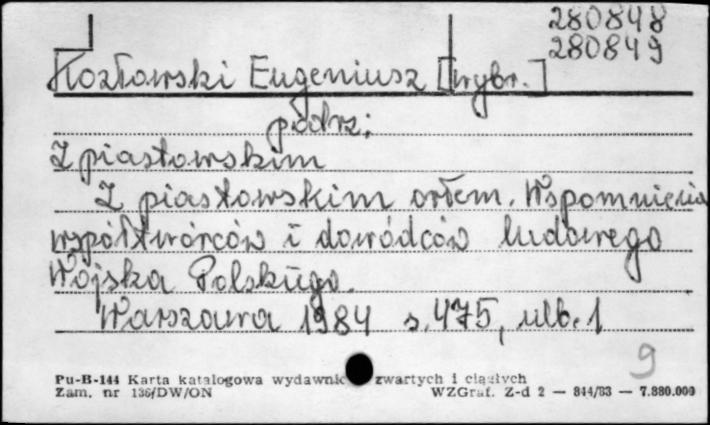 280848
280849
Kozłowski Eugeniusz [wybr.]
podrz:
Z piastowskim
Z piastowskim orłem. Wspomnienia
współtwórców i dowódców ludowego
Wojska Polskiego.
Warszawa 1984 s. 475, ulb. 1
9
Pu-B-144 Karta katalogowa wydawnic zwartych i ciągłych
Zam. nr 136/DW/ON WZGraf. Z-d 2 — 844/83 — 7.880.000